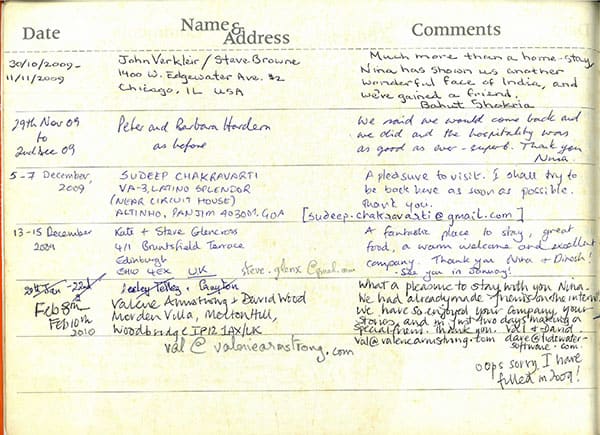 Date Name & Address Comments
30/10/2009 -
11/11/2009
John Verkleir / Steve Browne
1400 W. Edgewater Ave. #2
Chicago, IL USA
Much more than a home-stay,
Nina has shown us another
wonderful face of India, and
we've gained a friend.
Bahut Shukria
29th Nov 09
to
2nd Dec 09
Peter and Barbara Hardern
as before
We said we would come back and
we did and the hospitality was
as good as ever - superb. Thank you
Nina.
5-7 December,
2009
SUDEEP CHAKRAVARTI
VA-3, LATINO SPLENDOR
(NEAR CIRCUIT HOUSE)
ALTINHO, PANJIM 403001. GOA
A pleasure to visit. I shall try to
be back here as soon as possible.
Thank you.
[sudeep.chakravarti@gmail.com]
13-15 December
2009
Kate & Steve Glencross
4/1 Bruntsfield Terrace
Edinburgh
EH10 4EX UK
steve.glenx@gmail.com
A fantastic place to stay, great
food, a warm welcome and excellent
company. Thank you Nina & Dinesh!
- See you in January!
20th Jan - 22nd
Feb 8th
Feb 10th
2010
Lesley Tetley - Clayton
Valerie Armstrong & David Wood
Marden Villa, Melton Hill,
Woodbridge IP12 1AX/UK
val@valeriearmstrong.com
What a pleasure to stay with you Nina.
We had already made friends on the internet
We have so enjoyed your company, your
stories, and in just two days making a
special friend. Thank you. Val & David.
val@valeriearmstrong.com dave@tidewater-
software.com.
oops sorry I have
filled in 2009!